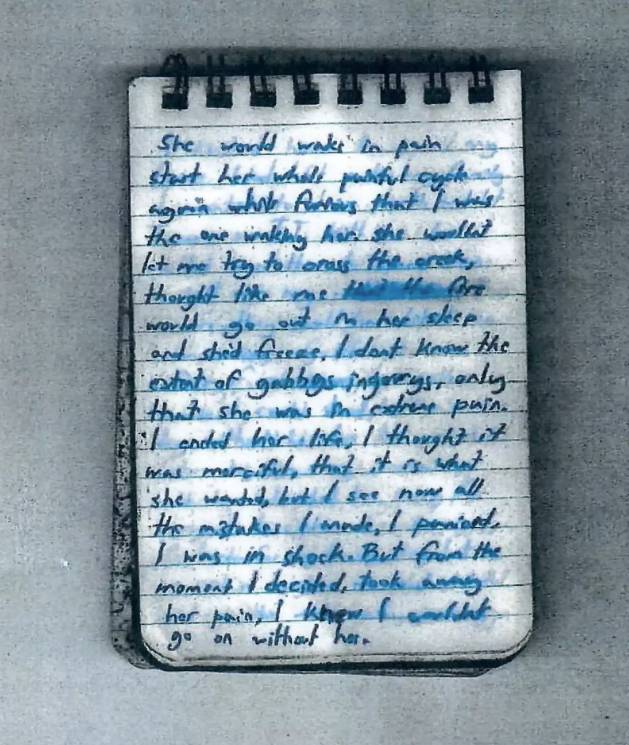 She would wake in pain
start her whole painful cycle
again while furious that I was
the one waking her. She wouldnt
let me try to cross the creek,
thought like me the fire
would go out in her sleep
and she'd freeze. I dont know the
extent of gabbys injurys, only
that she was in extreme pain.
I ended her life, I thought it
was merciful, that it is what
she wanted, but I see now all
the mistakes I made, I panicked,
I was in shock. But from the
moment I decided, took away
her pain, I knew I wouldnt
go on without her.